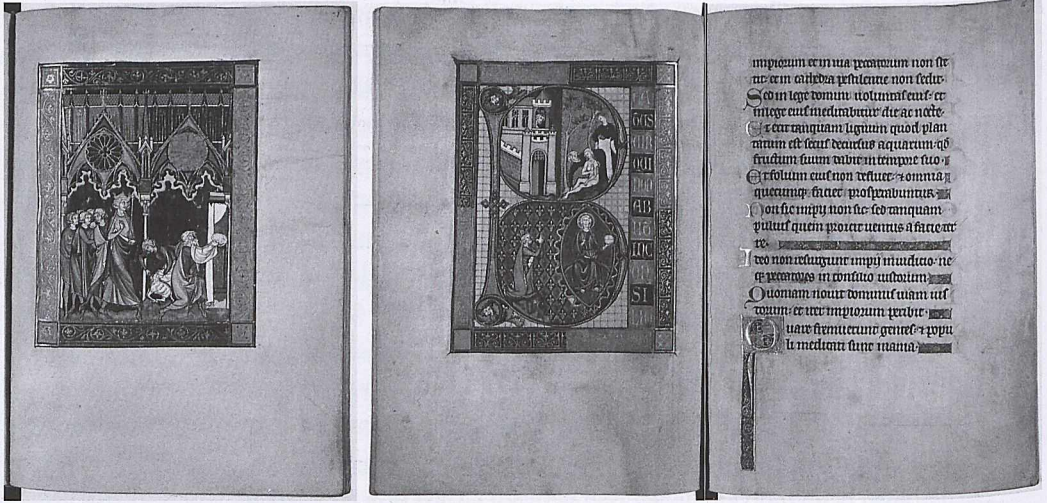 QUI
AB
SI
impiorum et in uia peccatorum non ste
tit: et in cathedra pestilentie non sedit.
Sed in lege domini uoluntas eius: et
in lege eius meditabitur die ac nocte.
Et erit tanquam lignum quod plan
tatum est secus decursus aquarum: qd
fructum suum dabit in tempore suo.
Et folium eius non defluet: & omnia
quecunq; faciet prosperabuntur.
Non sic impij non sic: sed tanquam
puluis quem proicit uentus a facie ter
re.
Ideo non resurgunt impij in iudicio: ne
q; peccatores in consilio iustorum.
Quoniam nouit dominus uiam ius
torum: et iter impiorum peribit.
Quare fremuerunt gentes: & popu
li meditati sunt inania.